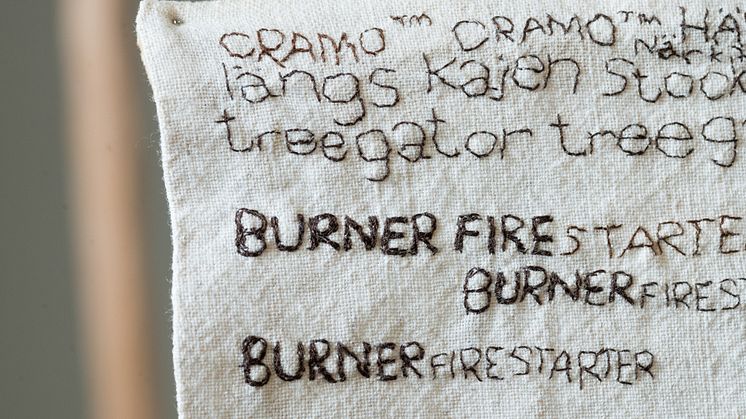 CRAMO™ CRAMO™ HÄ
längs kajen Stock
treegator treeg
BURNER FIRESTARTER
BURNERFIRES
BURNERFIRESTARTER